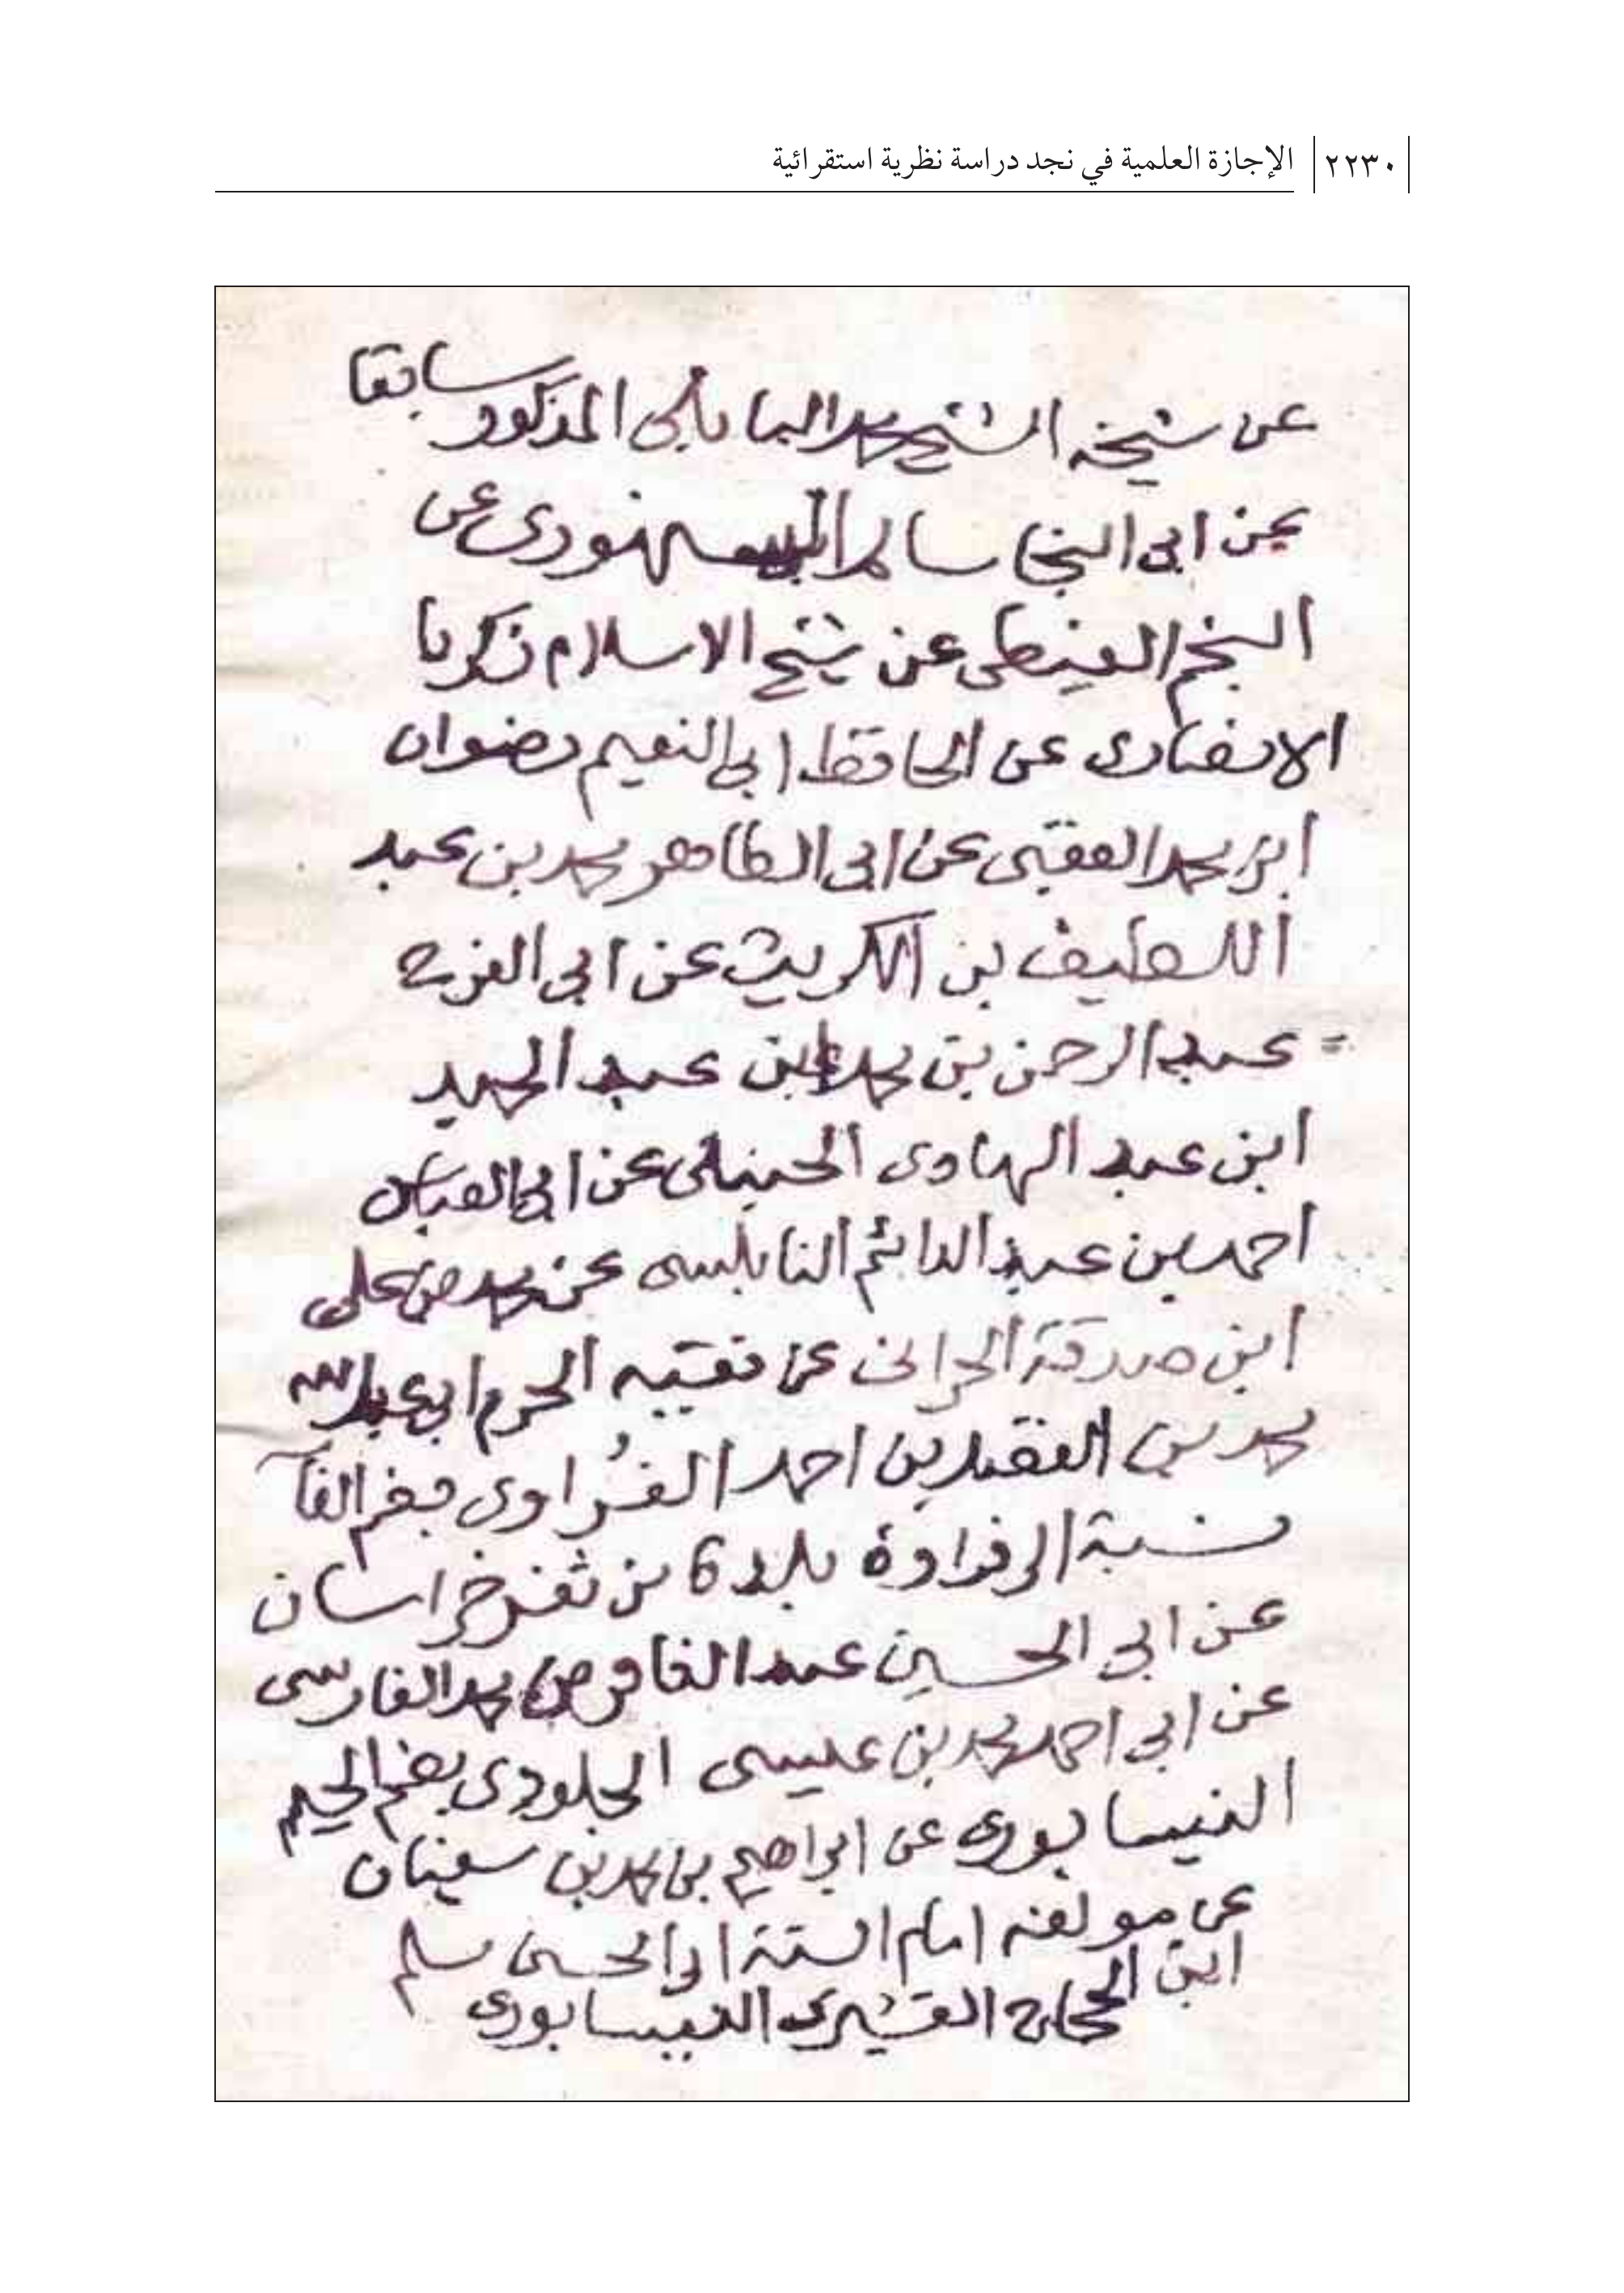 ٢٢٣٠ الإجازة العلمية في نجد دراسة نظرية استقرائية
عن شيخه الشيخ محمد البابلي المذكور سابقا
عن ابي النجا سالم السنهوري عن
النجم الغيطي عن شيخ الاسلام زكريا
الانصاري عن الحافظ ابي النعيم رضوان
ابن محمد العقبي عن ابي الطاهر محمد بن عبد
اللطيف بن الكويك عن ابي الفرج
عبد الرحمن بن محمد بن عبد الحميد
ابن عبد الهادي الحنبلي عن ابي العباس
احمد بن عبد الدائم النابلسي عن محمد بن علي
ابن صدقة الحراني عن فقيه الحرم ابي عبد الله
محمد بن الفضل بن احمد الفُراوي بضم الفآ
نسبة الى فراوة بلدة من ثغر خراسان
عن ابي الحسين عبد الغافر بن محمد الفارسي
عن ابي احمد محمد بن عيسى الجلودي بضم الجيم
النيسابوري عن ابراهيم بن محمد بن سفيان
عن مولفه امام السنة ابي الحسين مسلم
ابن الحجاج القشيري النيسابوري